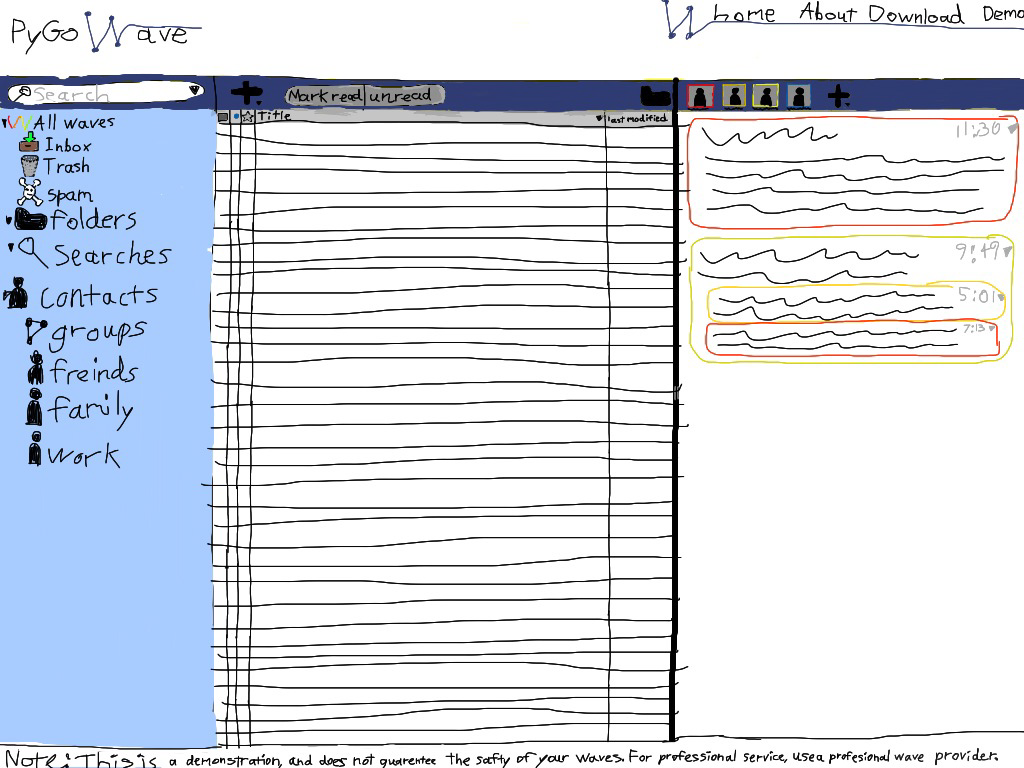 PyGoWave
Home About Download Demo
Search
Mark read unread
Title
last modified
All waves
Inbox
Trash
spam
folders
Searches
Contacts
groups
freinds
family
work
11:30
9:49
5:01
7:13
Note: This is a demonstration, and does not guarentee the safty of your waves. For professional service, use a profesional wave provider.